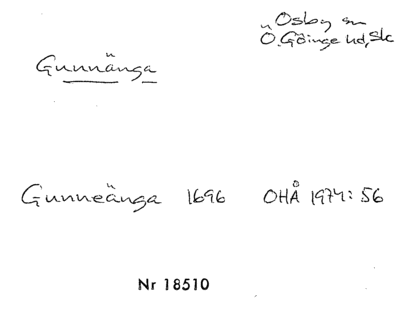 Osby sn
Ö. Göinge hd, Sk
Gunnänga
Gunneänga 1696 OHÅ 1974: 56
Nr 18510